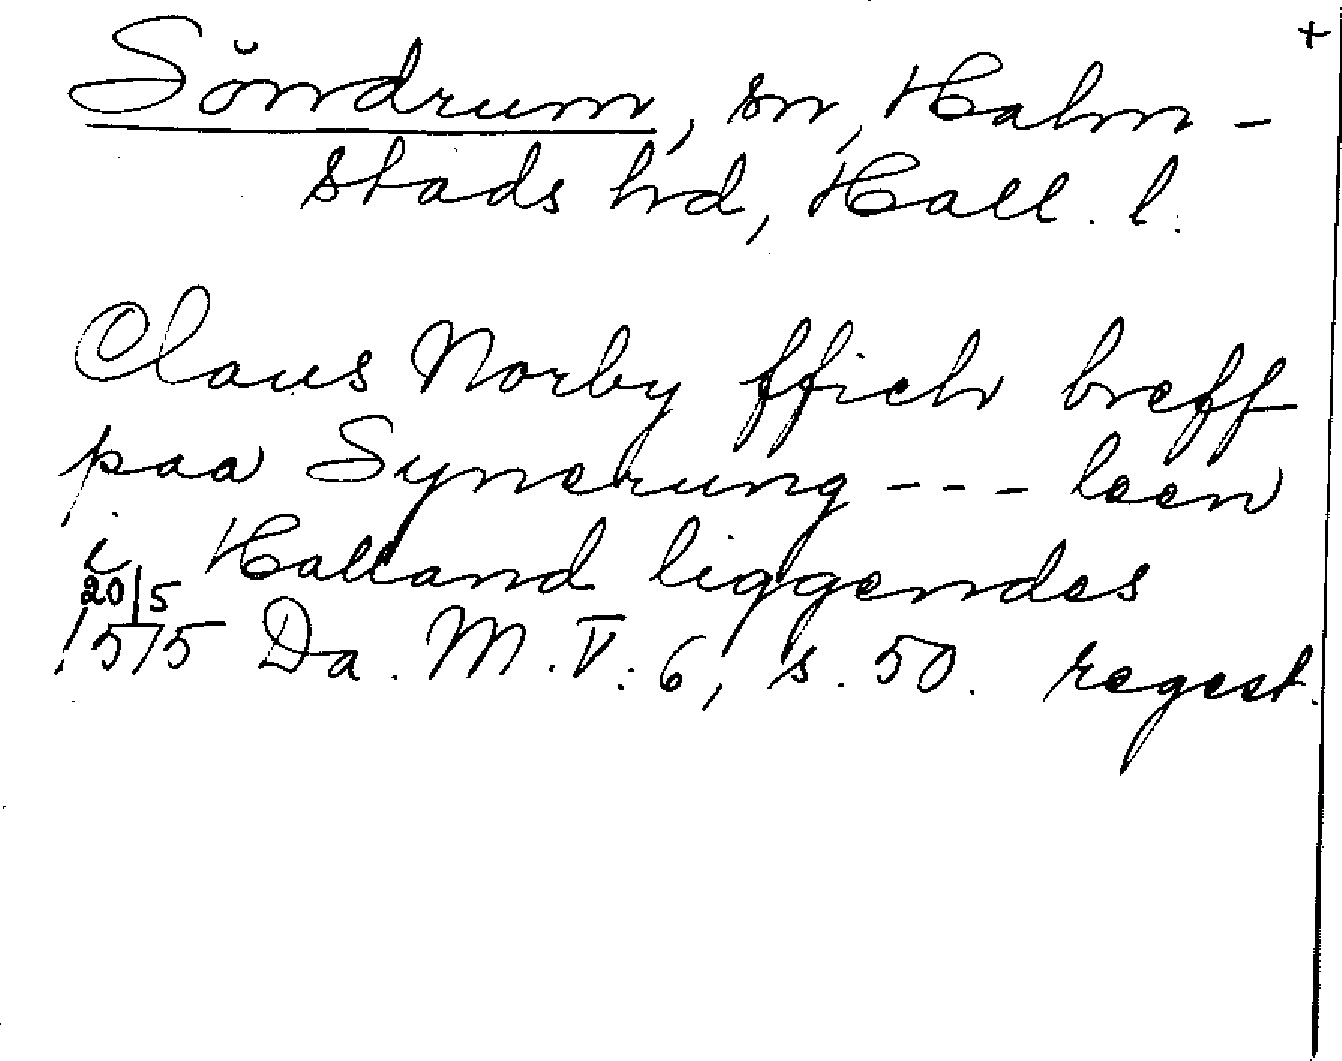 +
Söndrum, sn, Halm-
stads hd, Hall. l.
Claus Norby ffick breff
paa Synerung --- leen
i Halland liggendes
20/5
1515 Da. M. V: 6, s. 50. regest.